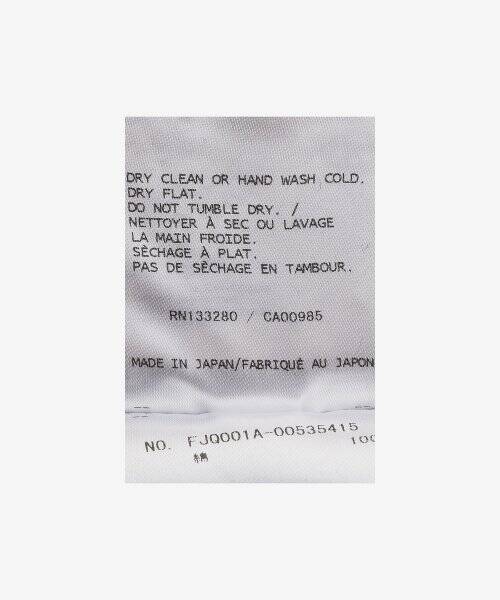 DRY CLEAN OR HAND WASH COLD.
DRY FLAT.
DO NOT TUMBLE DRY. /
NETTOYER À SEC OU LAVAGE
LA MAIN FROIDE.
SÈCHAGE À PLAT.
PAS DE SÈCHAGE EN TAMBOUR.
RN133280 / CA00985
MADE IN JAPAN/FABRIQUÉ AU JAPON
NO. FJQ001A-00535415
綿 100